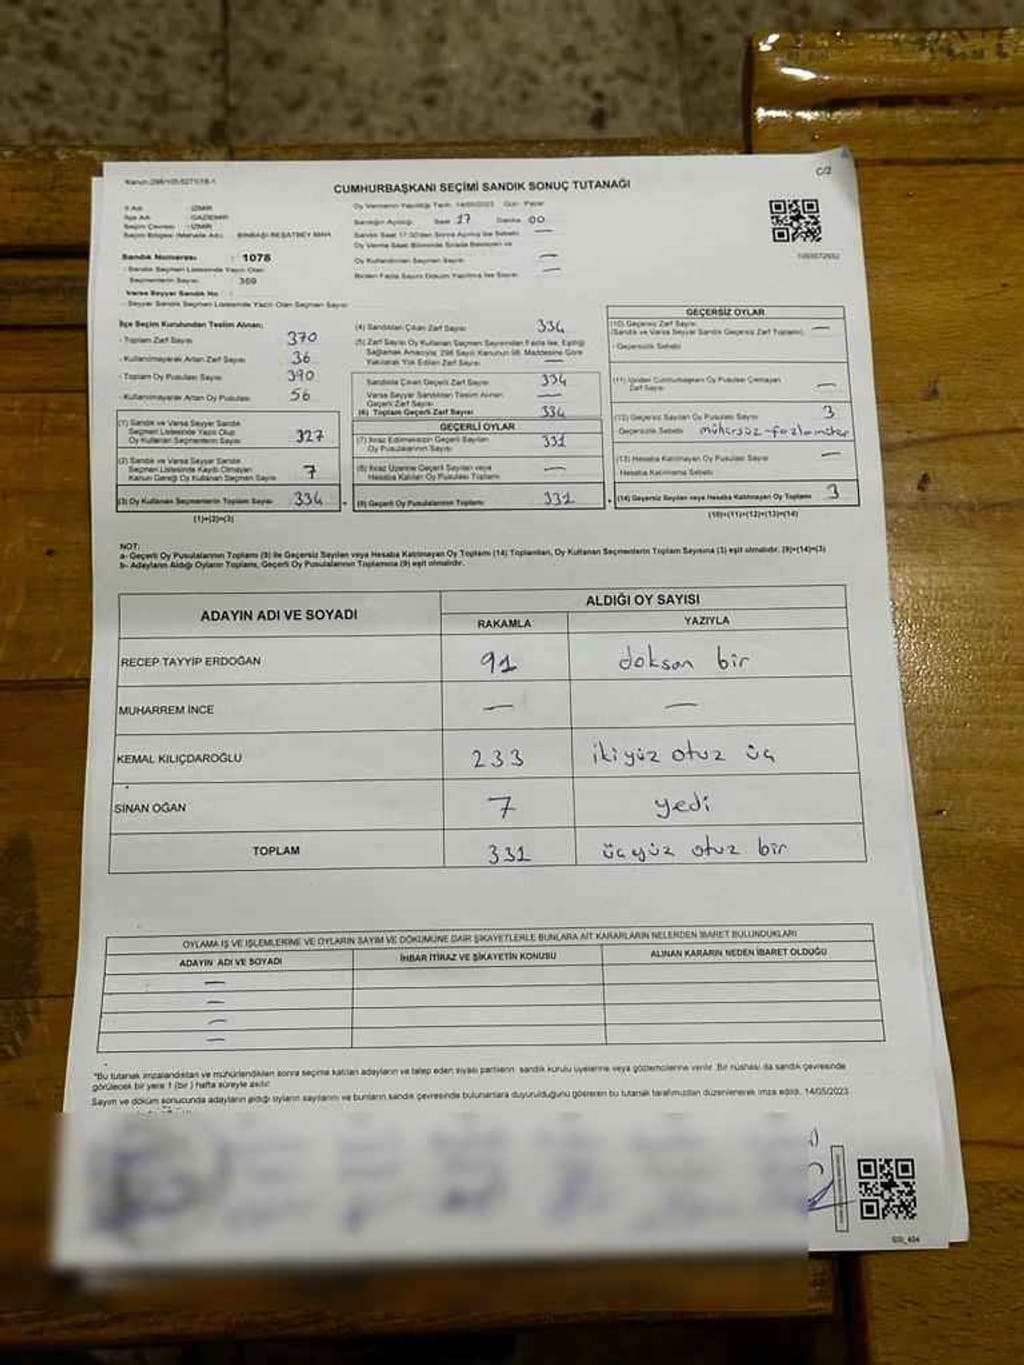 Kanun:298/105,6271/18-1
C/2
CUMHURBAŞKANI SEÇİMİ SANDIK SONUÇ TUTANAĞI
İl Adı : İZMİR
İlçe Adı : GAZİEMİR
Seçim Çevresi : İZMİR
Seçim Bölgesi (Mahalle Adı) : BİNBAŞI REŞATBEY MAH.
Sandık Numarası : 1078
- Sandık Seçmen Listesinde Yazılı Olan
Seçmenlerin Sayısı : 369
Varsa Seyyar Sandık No :
- Seyyar Sandık Seçmen Listesinde Yazılı Olan Seçmen Sayısı
Oy Vermenin Yapıldığı Tarih: 14/05/2023 Gün : Pazar
Sandığın Açıldığı Saat 17 Dakika 00
Sandık Saat 17:00'den Sonra Açılmış İse Sebebi: —
Oy Verme Saati Bitiminde Sırada Bekleyen ve
Oy Kullandırılan Seçmen Sayısı: —
Birden Fazla Sayım Döküm Yapılmış İse Sayısı: —
İlçe Seçim Kurulundan Teslim Alınan;
- Toplam Zarf Sayısı 370
- Kullanılmayarak Artan Zarf Sayısı 36
- Toplam Oy Pusulası Sayısı 390
- Kullanılmayarak Artan Oy Pusulası 56
(1) Sandık ve Varsa Seyyar Sandık
Seçmen Listesinde Yazılı Olup
Oy Kullanan Seçmenlerin Sayısı 327
(2) Sandık ve Varsa Seyyar Sandık
Seçmen Listesinde Kaydı Olmayan
Kanun Gereği Oy Kullanan Seçmen Sayısı 7
(3) Oy Kullanan Seçmenlerin Toplam Sayısı 334
(1)+(2)=(3)
(4) Sandıktan Çıkan Zarf Sayısı 334
(5) Zarf Sayısı Oy Kullanan Seçmen Sayısından Fazla İse, Eşitliği
Sağlamak Amacıyla; 298 Sayılı Kanunun 98. Maddesine Göre
Yakılarak Yok Edilen Zarf Sayısı —
Sandıkta Çıkan Geçerli Zarf Sayısı 334
Varsa Seyyar Sandıktan Teslim Alınan
Geçerli Zarf Sayısı —
(6) Toplam Geçerli Zarf Sayısı 334
GEÇERLİ OYLAR
(7) İtiraz Edilmeksizin Geçerli Sayılan
Oy Pusulalarının Sayısı 331
(8) İtiraz Üzerine Geçerli Sayılan veya
Hesaba Katılan Oy Pusulası Toplamı —
(9) Geçerli Oy Pusulalarının Toplamı 331
GEÇERSİZ OYLAR
(10) Geçersiz Zarf Sayısı
(Sandık ve Varsa Seyyar Sandık Geçersiz Zarf Toplamı) —
- Geçersizlik Sebebi
(11) İçinden Cumhurbaşkanı Oy Pusulası Çıkmayan
Zarf Sayısı —
(12) Geçersiz Sayılan Oy Pusulası Sayısı 3
- Geçersizlik Sebebi mühürsüz-fazla mühür
(13) Hesaba Katılmayan Oy Pusulası Sayısı —
Hesaba Katılmama Sebebi
(14) Geçersiz Sayılan veya Hesaba Katılmayan Oy Toplamı 3
(10)+(11)+(12)+(13)=(14)
NOT:
a- Geçerli Oy Pusulalarının Toplamı (9) ile Geçersiz Sayılan veya Hesaba Katılmayan Oy Toplamı (14) Toplamları, Oy Kullanan Seçmenlerin Toplam Sayısına (3) eşit olmalıdır. (9)+(14)=(3)
b- Adayların Aldığı Oyların Toplamı, Geçerli Oy Pusulalarının Toplamına (9) eşit olmalıdır.
ADAYIN ADI VE SOYADI
ALDIĞI OY SAYISI
RAKAMLA YAZIYLA
RECEP TAYYİP ERDOĞAN 91 doksan bir
MUHARREM İNCE — —
KEMAL KILIÇDAROĞLU 233 ikiyüz otuz üç
SİNAN OĞAN 7 yedi
TOPLAM 331 üçyüz otuz bir
OYLAMA İŞ VE İŞLEMLERİNE VE OYLARIN SAYIM VE DÖKÜMÜNE DAİR ŞİKAYETLERLE BUNLARA AİT KARARLARIN NELERDEN İBARET BULUNDUKLARI
ADAYIN ADI VE SOYADI İHBAR İTİRAZ VE ŞİKAYETİN KONUSU ALINAN KARARIN NEDEN İBARET OLDUĞU
—
—
—
—
"Bu tutanak imzalandıktan ve mühürlendikten sonra seçime katılan adayların ve talep eden siyasi partilerin sandık kurulu üyelerine veya gözlemcilerine verilir. Bir nüshası da sandık çevresinde
görülecek bir yere 1 (bir) hafta süreyle asılır.
Sayım ve döküm sonucunda adayların aldığı oyların sayılarını ve bunların sandık çevresinde bulunanlara duyurulduğunu gösteren bu tutanak tarafımızdan düzenlenerek imza edildi. 14/05/2023